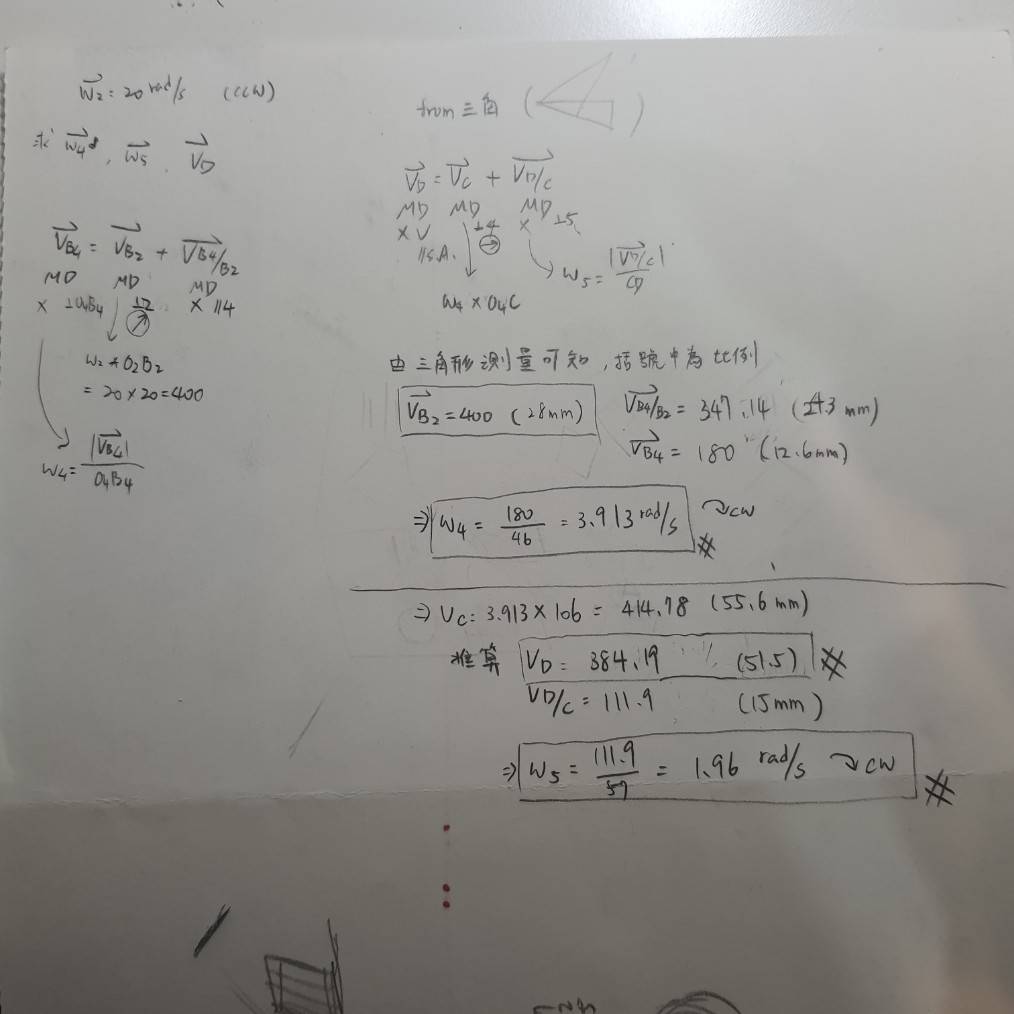 W₂ = 20 rad/s (CCW)
求 W₄, W₅, V_D
V_B₄ = V_B₂ + V_B₄/B₂
MD MD MD
× ⊥O₄B₄ ⊥2 × //4
W₂ × O₂B₂
= 20 × 20 = 400
W₄ = |V_B₄| / O₄B₄
from 三角 ( )
V_D = V_C + V_D/C
MD MD MD
× V ⊥4 × ⊥5
//S.A.
W₅ = |V_D/C| / CD
W₄ × O₄C
由三角形測量可知，括號中為比例
V_B₂ = 400 (28mm)
V_B₄/B₂ = 347.14 (24.3 mm)
V_B₄ = 180 (12.6mm)
⇒ W₄ = 180/46 = 3.913 rad/s ↷CW #
⇒ V_C = 3.913 × 106 = 414.78 (55.6 mm)
推算 V_D = 384.19 (51.5) #
V_D/C = 111.9 (15mm)
⇒ W₅ = 111.9/57 = 1.96 rad/s ↷CW #